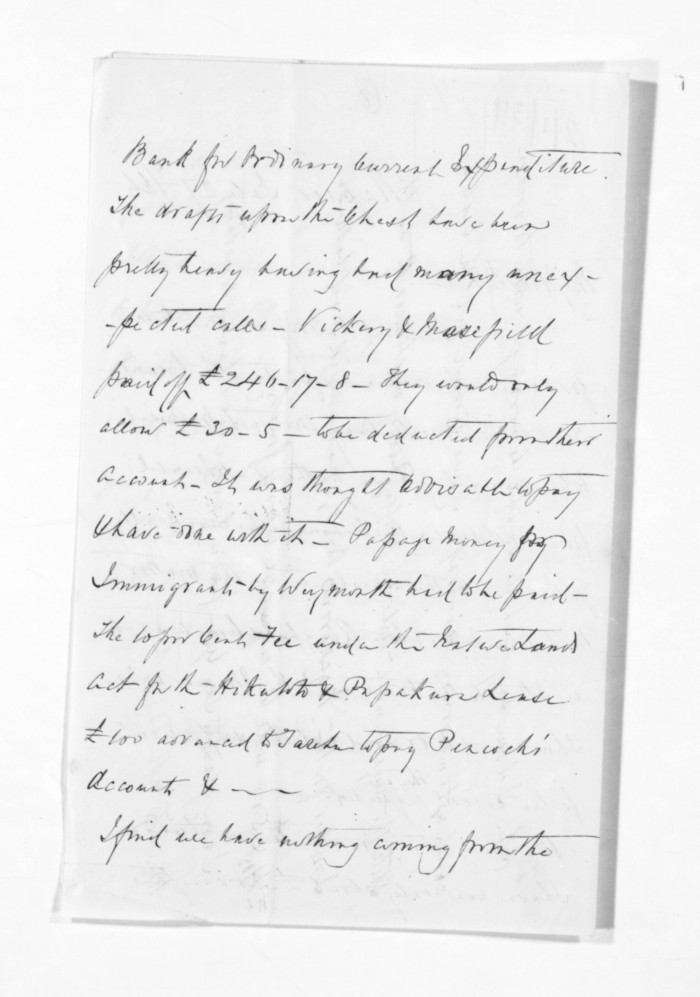 Bank for Ordinary Current Expenditure.
The drafts upon the Chest have been
pretty heavy having had many unex-
-pected calls - Vickery & Masefield
paid off £246-17-8 - They would only
allow £30-5- to be deducted from their
Account - It was thought advisable to pay
& have done with it - Passage Money for
Immigrants by Weymouth had to be paid -
The 10 per Cent Fee under the Native Lands
Act for the Hikutoto & Papakura Lease
£100 advanced to Tareha to pay Peacock's
Account & ——
I find we have nothing coming from the